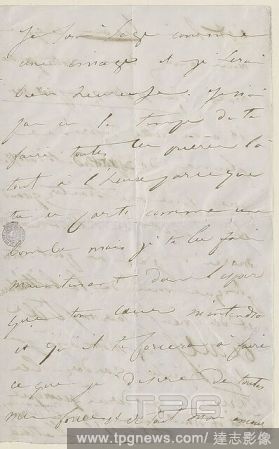 Je serai sage comme
une image et je serai
bien heureuse. Je n'ai
pas eu le temps de te
faire toutes ces prières là
tout à l'heure parce que
tu es parti comme une
bombe mais je te les fais
maintenant dans l'espoir
que ton cœur m'entendra
et qu'il te forcera à faire
ce que je désire de toutes
mes forces et de tout mon amour
TPG
www.tpgnews.com/ 達志影像